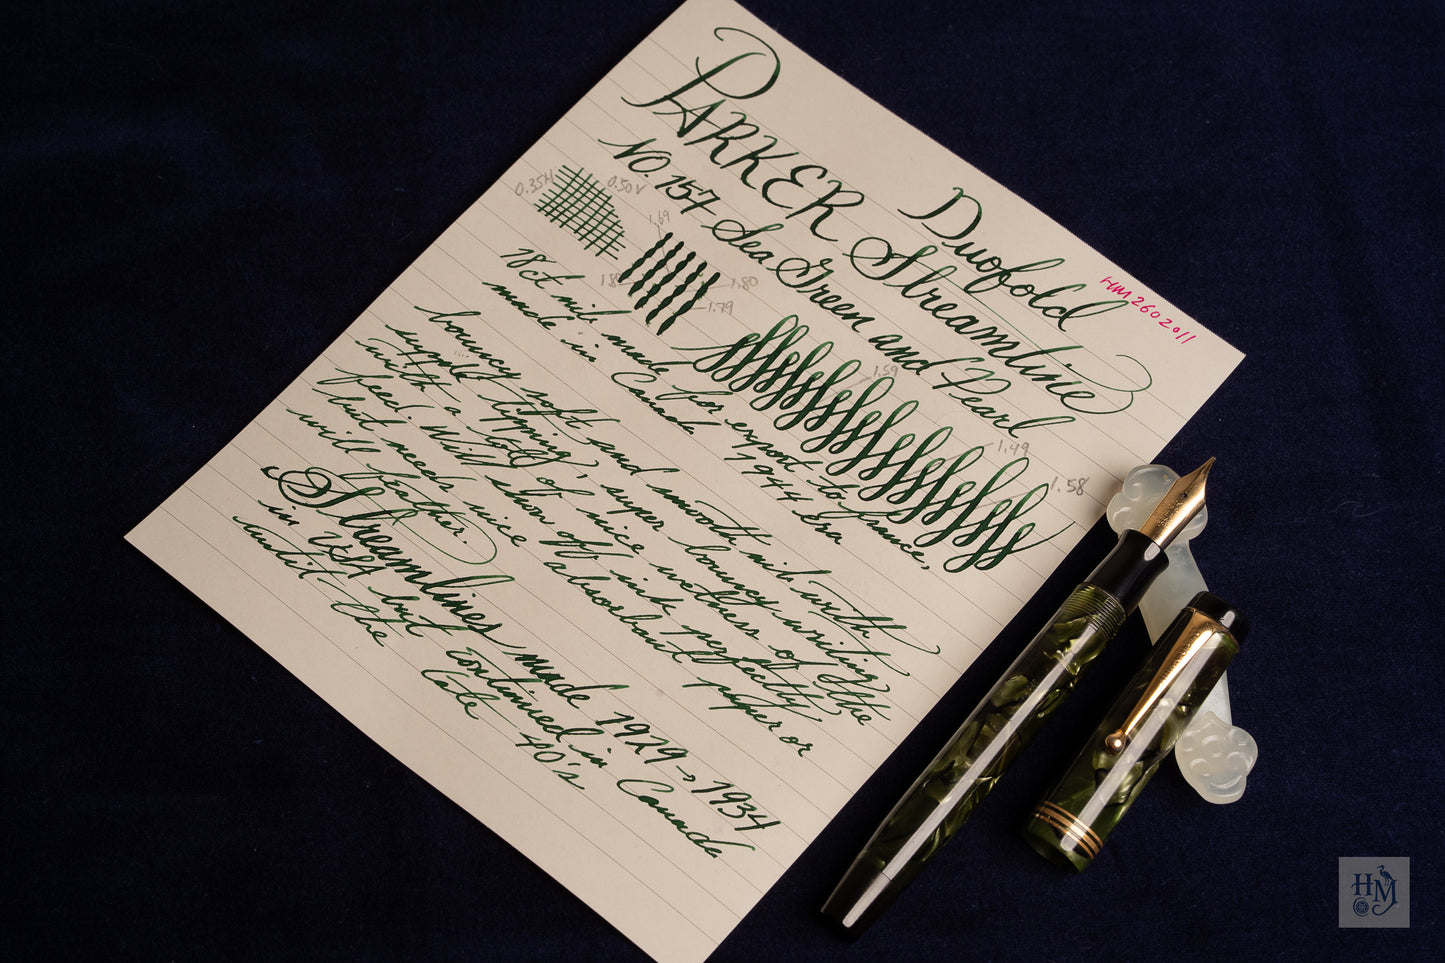 PARKER
Duofold
Streamline
HM2602011
No. 157 Sea Green and Pearl
0.35H
0.50V
1.69
1.80
1.79
1.59
1.49
1.58
18ct nib made for export to France,
made in Canada 1944 Era
bouncy soft and smooth nib with
supple tipping, super bouncy writing
with a of nice wetness of the
feed. Will show off ink perfectly
but needs nice absorbant paper or
will feather.
Streamlines made 1929 → 1934
in USA but continued in Canada
until the late 40's
HM